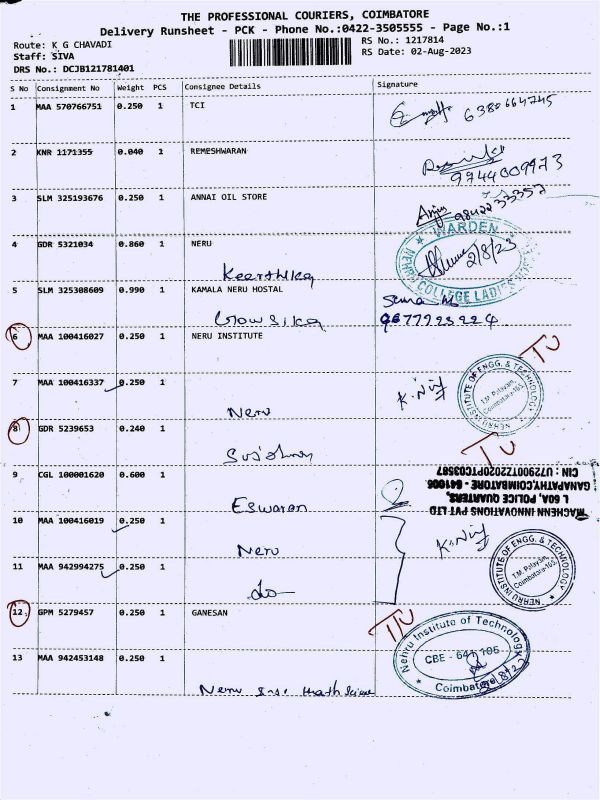 THE PROFESSIONAL COURIERS, COIMBATORE
Delivery Runsheet - PCK - Phone No.:0422-3505555 - Page No.:1
Route: K G CHAVADI RS No.: 1217814
Staff: SIVA RS Date: 02-Aug-2023
DRS No.: DCJB121781401
S No Consignment No Weight PCS Consignee Details Signature
1 MAA 570766751 0.250 1 TCI 6380664745
2 KNR 1171355 0.040 1 REMESHWARAN
9744009973
3 SLM 325193676 0.250 1 ANNAI OIL STORE
9842233357
WARDEN
4 GDR 5321034 0.860 1 NERU 2/8/23
NEHRU COLLEGE LADIES
Keerthika
5 SLM 325308609 0.990 1 KAMALA NERU HOSTAL
Gowsika 9677723224
6 MAA 100416027 0.250 1 NERU INSTITUTE
TU
7 MAA 100416337 0.250 1 K. Niy
NEHRU INSTITUTE OF ENGG. & TECHNOLOGY
T.M. Palayam,
Coimbatore-105.
Neru
8 GDR 5239653 0.240 1
TU
9 CGL 100001620 0.600 1
Eswaran
MACHENN INNOVATIONS PVT LTD
L 60A, POLICE QUARTERS,
GANAPATHY,COIMBATORE - 641006
CIN : U72900TZ2020PTC03587
10 MAA 100416019 0.250 1
Neru K. Niy
NEHRU INSTITUTE OF ENGG. & TECHNOLOGY
T.M. Palayam,
Coimbatore-105.
11 MAA 942994275 0.250 1
do
12 GPM 5279457 0.250 1 GANESAN
TU
Nehru Institute of Technology
CBE - 641 105
Coimbatore
13 MAA 942453148 0.250 1
Neru